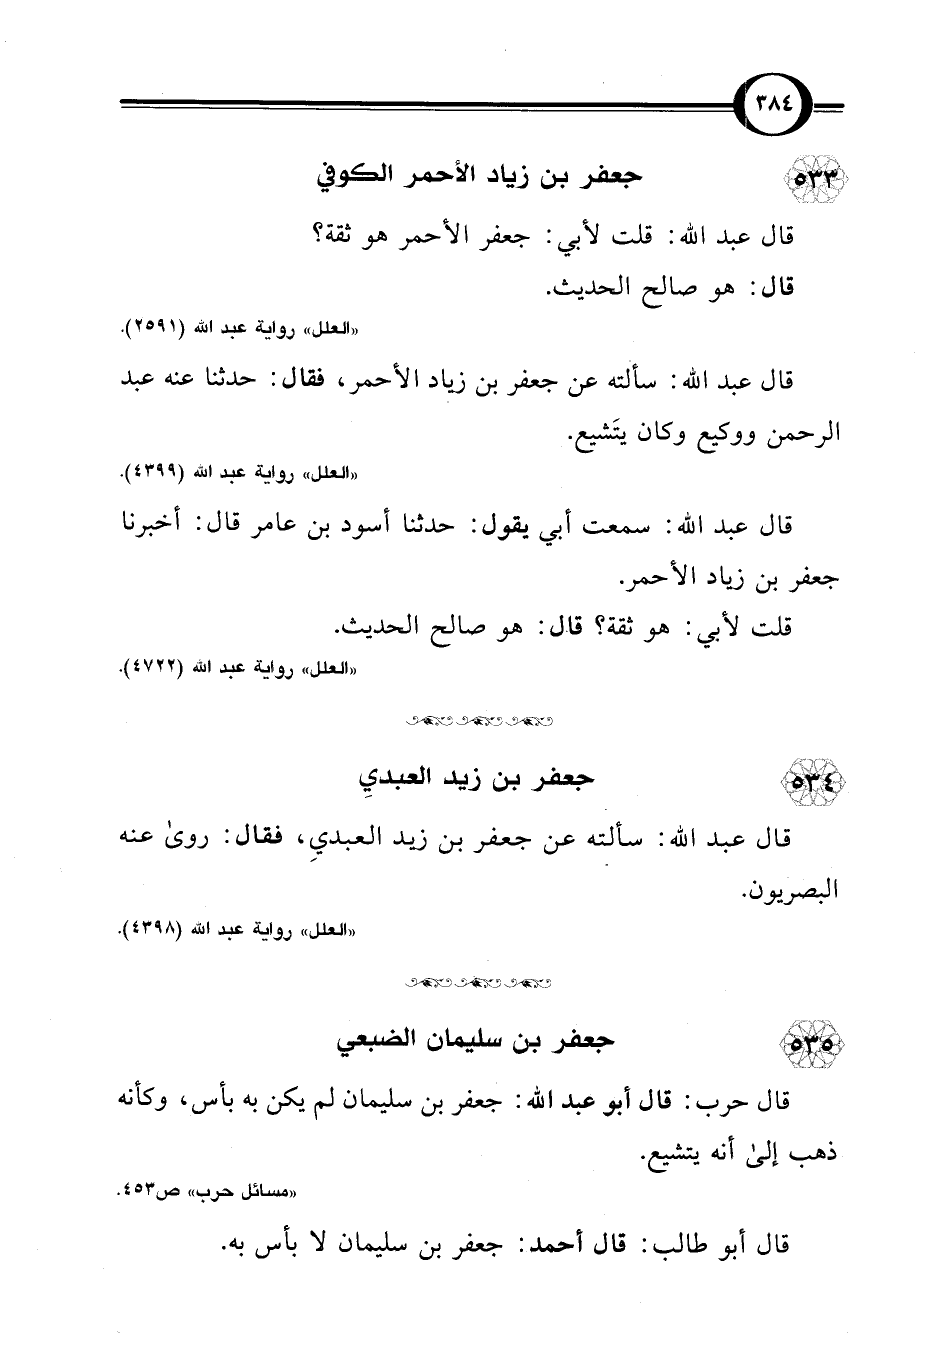 ٣٨٤
٥٣٣ جعفر بن زياد الأحمر الكوفي
قال عبد الله: قلت لأبي: جعفر الأحمر هو ثقة؟
قال: هو صالح الحديث.
«العلل» رواية عبد الله (٢٥٩١).
قال عبد الله: سألته عن جعفر بن زياد الأحمر، فقال: حدثنا عنه عبد
الرحمن ووكيع وكان يتَشيع.
«العلل» رواية عبد الله (٤٣٩٩).
قال عبد الله: سمعت أبي يقول: حدثنا أسود بن عامر قال: أخبرنا
جعفر بن زياد الأحمر.
قلت لأبي: هو ثقة؟ قال: هو صالح الحديث.
«العلل» رواية عبد الله (٤٧٢٢).
٥٣٤ جعفر بن زيد العبدي
قال عبد الله: سألته عن جعفر بن زيد العبدي، فقال: روىٰ عنه
البصريون.
«العلل» رواية عبد الله (٤٣٩٨).
٥٣٥ جعفر بن سليمان الضبعي
قال حرب: قال أبو عبد الله: جعفر بن سليمان لم يكن به بأس، وكأنه
ذهب إلىٰ أنه يتشيع.
«مسائل حرب» ص٤٥٣.
قال أبو طالب: قال أحمد: جعفر بن سليمان لا بأس به.